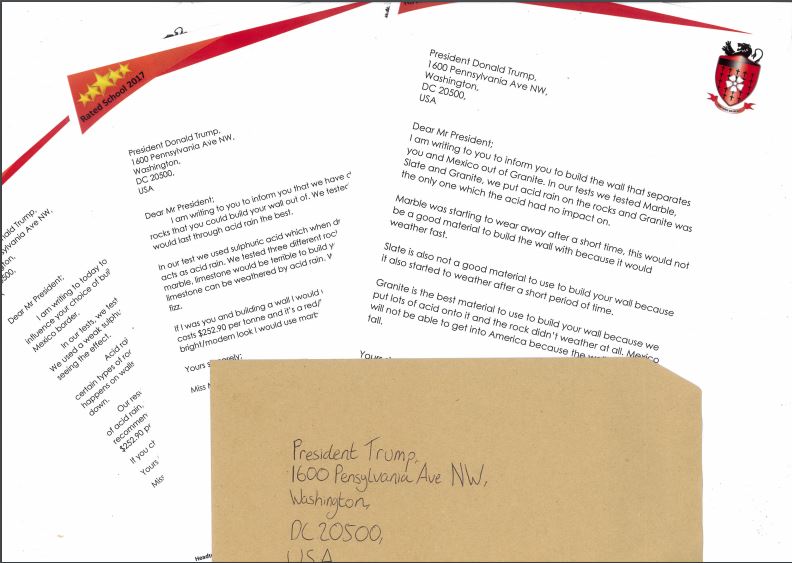 Rated School 2017
President Donald Trump,
1600 Pennsylvania Ave NW,
Washington,
DC 20500,
USA
Dear Mr President;
I am writing to you to inform you to build the wall that separates
you and Mexico out of Granite. In our tests we tested Marble,
Slate and Granite, we put acid rain on the rocks and Granite was
the only one which the acid had no impact on.
Marble was starting to wear away after a short time, this would not
be a good material to build the wall with because it would
weather fast.
Slate is also not a good material to use to build your wall because
it also started to weather after a short period of time.
Granite is the best material to use to build your wall because we
put lots of acid onto it and the rock didn't weather at all. Mexico
will not be able to get into America because the
tall.
President Donald Trump,
1600 Pennsylvania Ave NW,
Washington,
DC 20500,
USA
Dear Mr President;
I am writing to you to inform you that we have
rocks that you could build your wall out of. We tested
would last through acid rain the best.
In our test we used sulphuric acid which when
acts as acid rain. We tested three different
marble, limestone would be terrible to build
limestone can be weathered by acid rain.
fizz.
If I was you and building a wall I would
casts $252.90 per tonne and it's a
bright/modern look I would use
Yours
Miss
Trump,
Ave NW,
Dear Mr President;
I am writing to today to
influence your choice of
Mexico border.
In our tests, we
We used a weak
seeing the effect.
Acid
certain types of
happens on
down.
Our
of acid rain.
$252.90
If you
Yours
Miss
President Trump,
1600 Pensylvania Ave NW,
Washington,
DC 20500,
USA